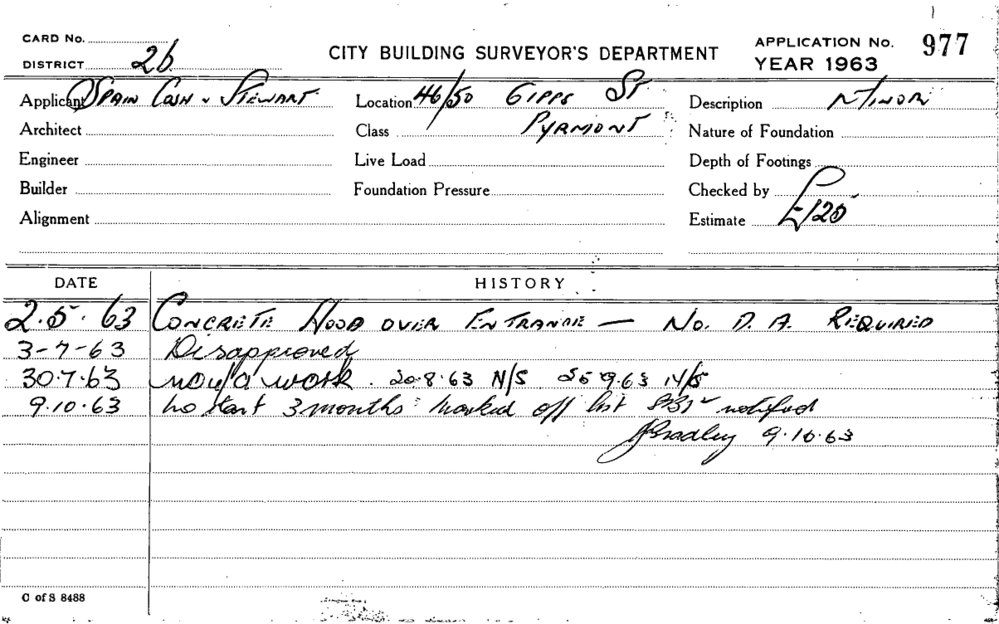 CARD No.
CITY BUILDING SURVEYOR'S DEPARTMENT
APPLICATION No. 977
DISTRICT 26
YEAR 1963
Applicant Spain Cosh & Stewart
Location 46/50 GIPPS St
Description MINOR
Architect
Class PYRMONT
Nature of Foundation
Engineer
Live Load
Depth of Footings
Builder
Foundation Pressure
Checked by
Alignment
Estimate £125
DATE HISTORY
2.5.63 CONCRETE HOOD OVER ENTRANCE — No. D. A. REQUIRED
3-7-63 Disapproved
30.7.63 work. 20.8.63 N/S 25.9.63 N/S
9.10.63 no start 3 months marked off list notified
Bradley 9.10.63
C of S 8488